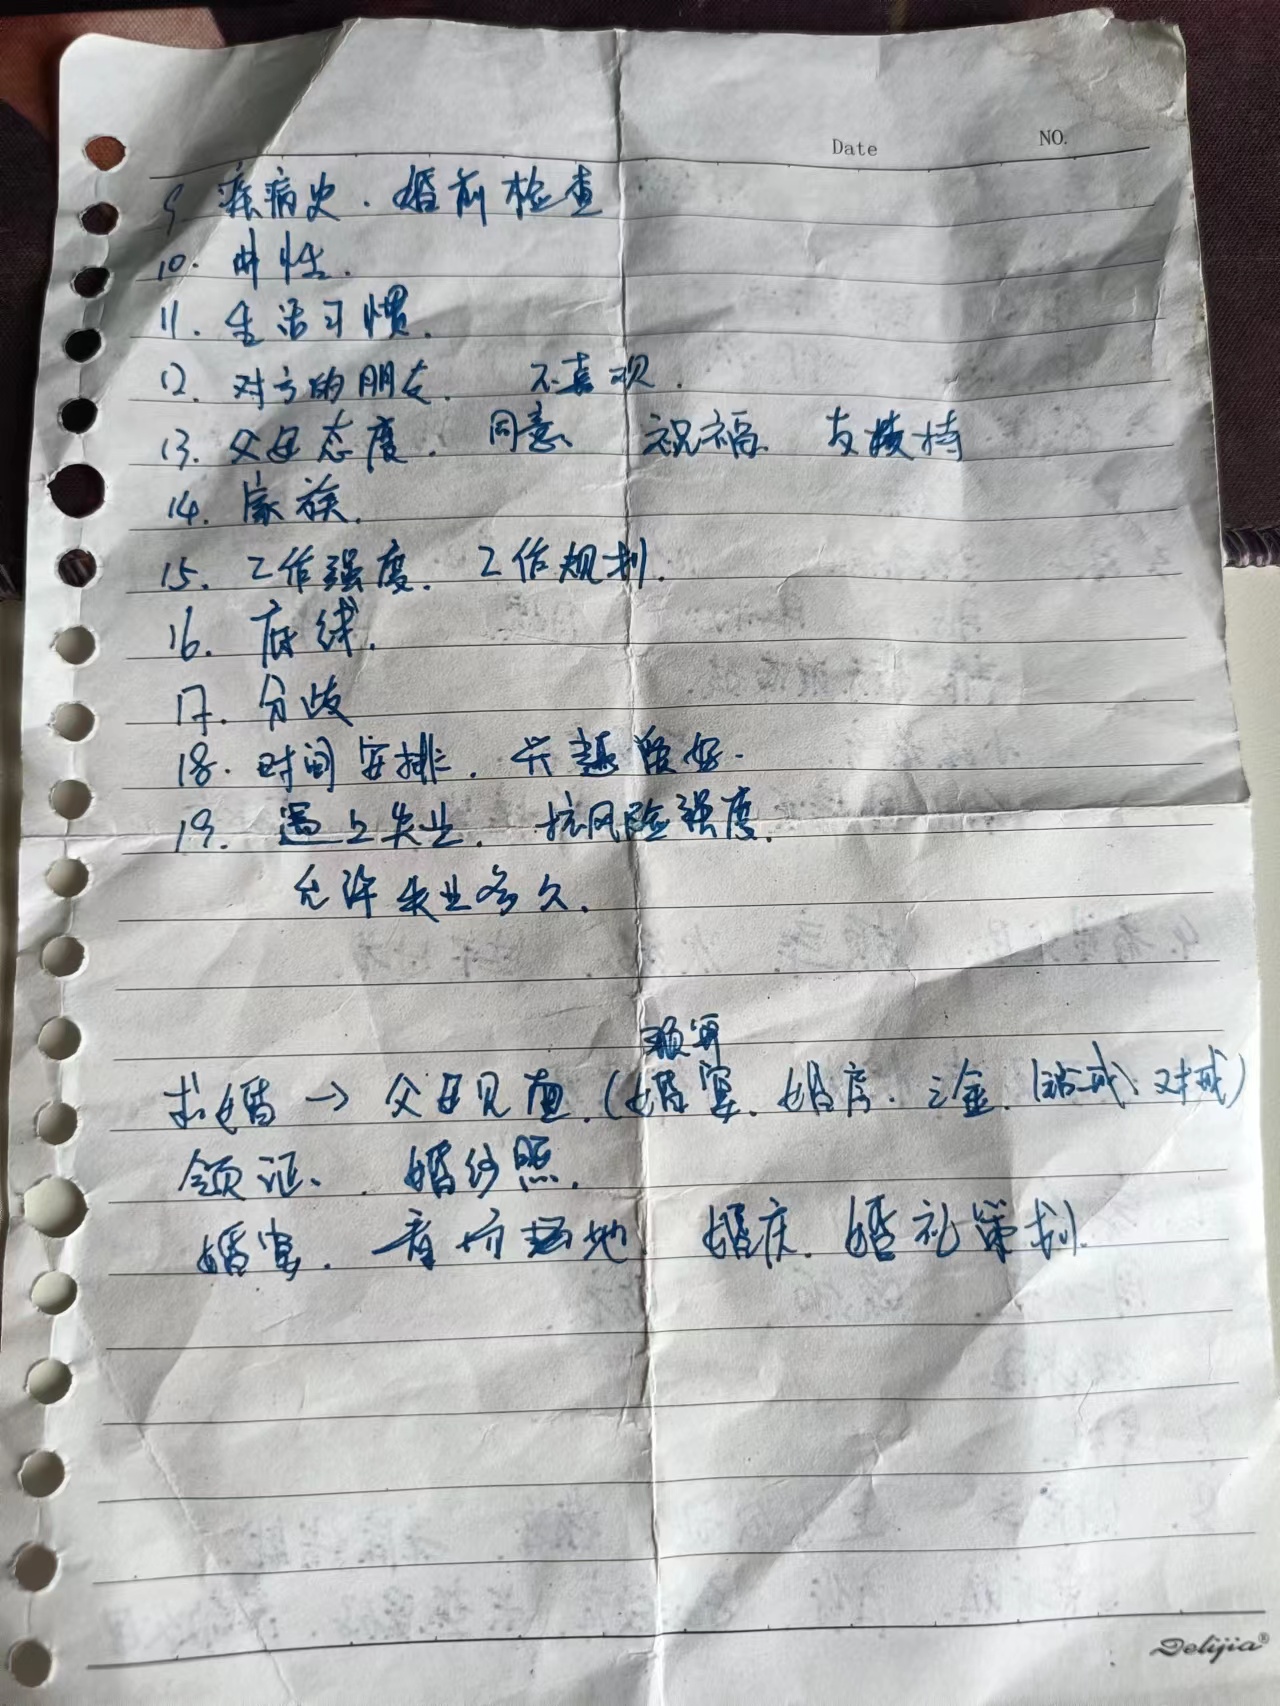 Date NO.
9. 疾病史. 婚前检查
10. 个性.
11. 生活习惯.
12. 对方的朋友. 不喜欢.
13. 父母态度. 同意、祝福、支持
14. 家族.
15. 工作强度. 工作规划.
16. 底线.
17. 分歧
18. 时间安排. 兴趣爱好.
19. 遇上失业. 抗风险强度.
允许失业多久.
预算
求婚 → 父母见面.(婚宴. 婚房. 三金. (钻戒、对戒)
领证、. 婚纱照.
婚宴. 场地 婚庆. 婚礼策划.
Delijia®